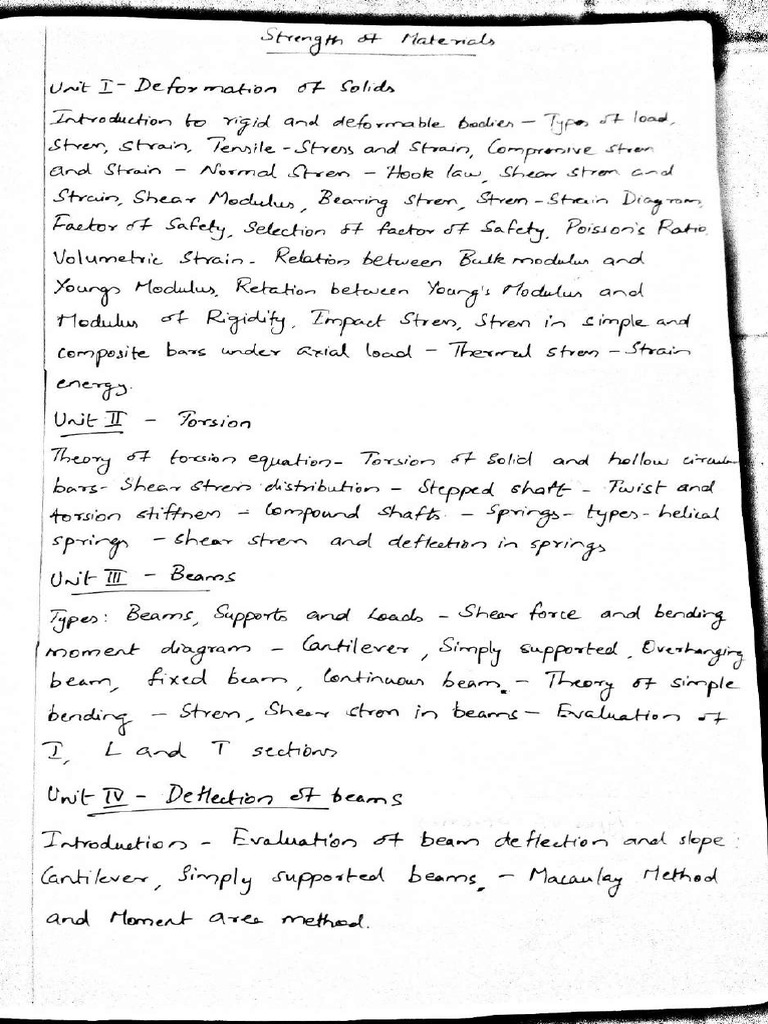 Strength of Materials
Unit I - Deformation of Solids
Introduction to rigid and deformable bodies - Types of load,
Stress, Strain, Tensile - Stress and Strain, Compressive stress
and Strain - Normal Stress - Hook law, Shear stress and
Strain, Shear Modulus, Bearing Stress, Stress-Strain Diagram,
Factor of Safety, Selection of factor of Safety, Poisson's Ratio.
Volumetric Strain - Relation between Bulk modulus and
Youngs Modulus, Retation between Young's Modulus and
Modulus of Rigidity, Impact Stress, Stress in simple and
composite bars under axial load - Thermal stress - Strain
energy.
Unit II - Torsion
Theory of torsion equation - Torsion of solid and hollow circular
bars - Shear stress distribution - Stepped shaft - Twist and
torsion stiffness - Compound shafts - Springs - types - helical
springs - shear stress and deflection in springs
Unit III - Beams
Types: Beams, Supports and Loads - Shear force and bending
moment diagram - Cantilever, Simply supported, Overhanging
beam, fixed beam, Continuous beam. - Theory of simple
bending - Stress, Shear stress in beams - Evaluation of
I, L and T sections
Unit IV - Deflection of beams
Introduction - Evaluation of beam deflection and slope:
Cantilever, Simply supported beams. - Macaulay Method
and Moment area method.